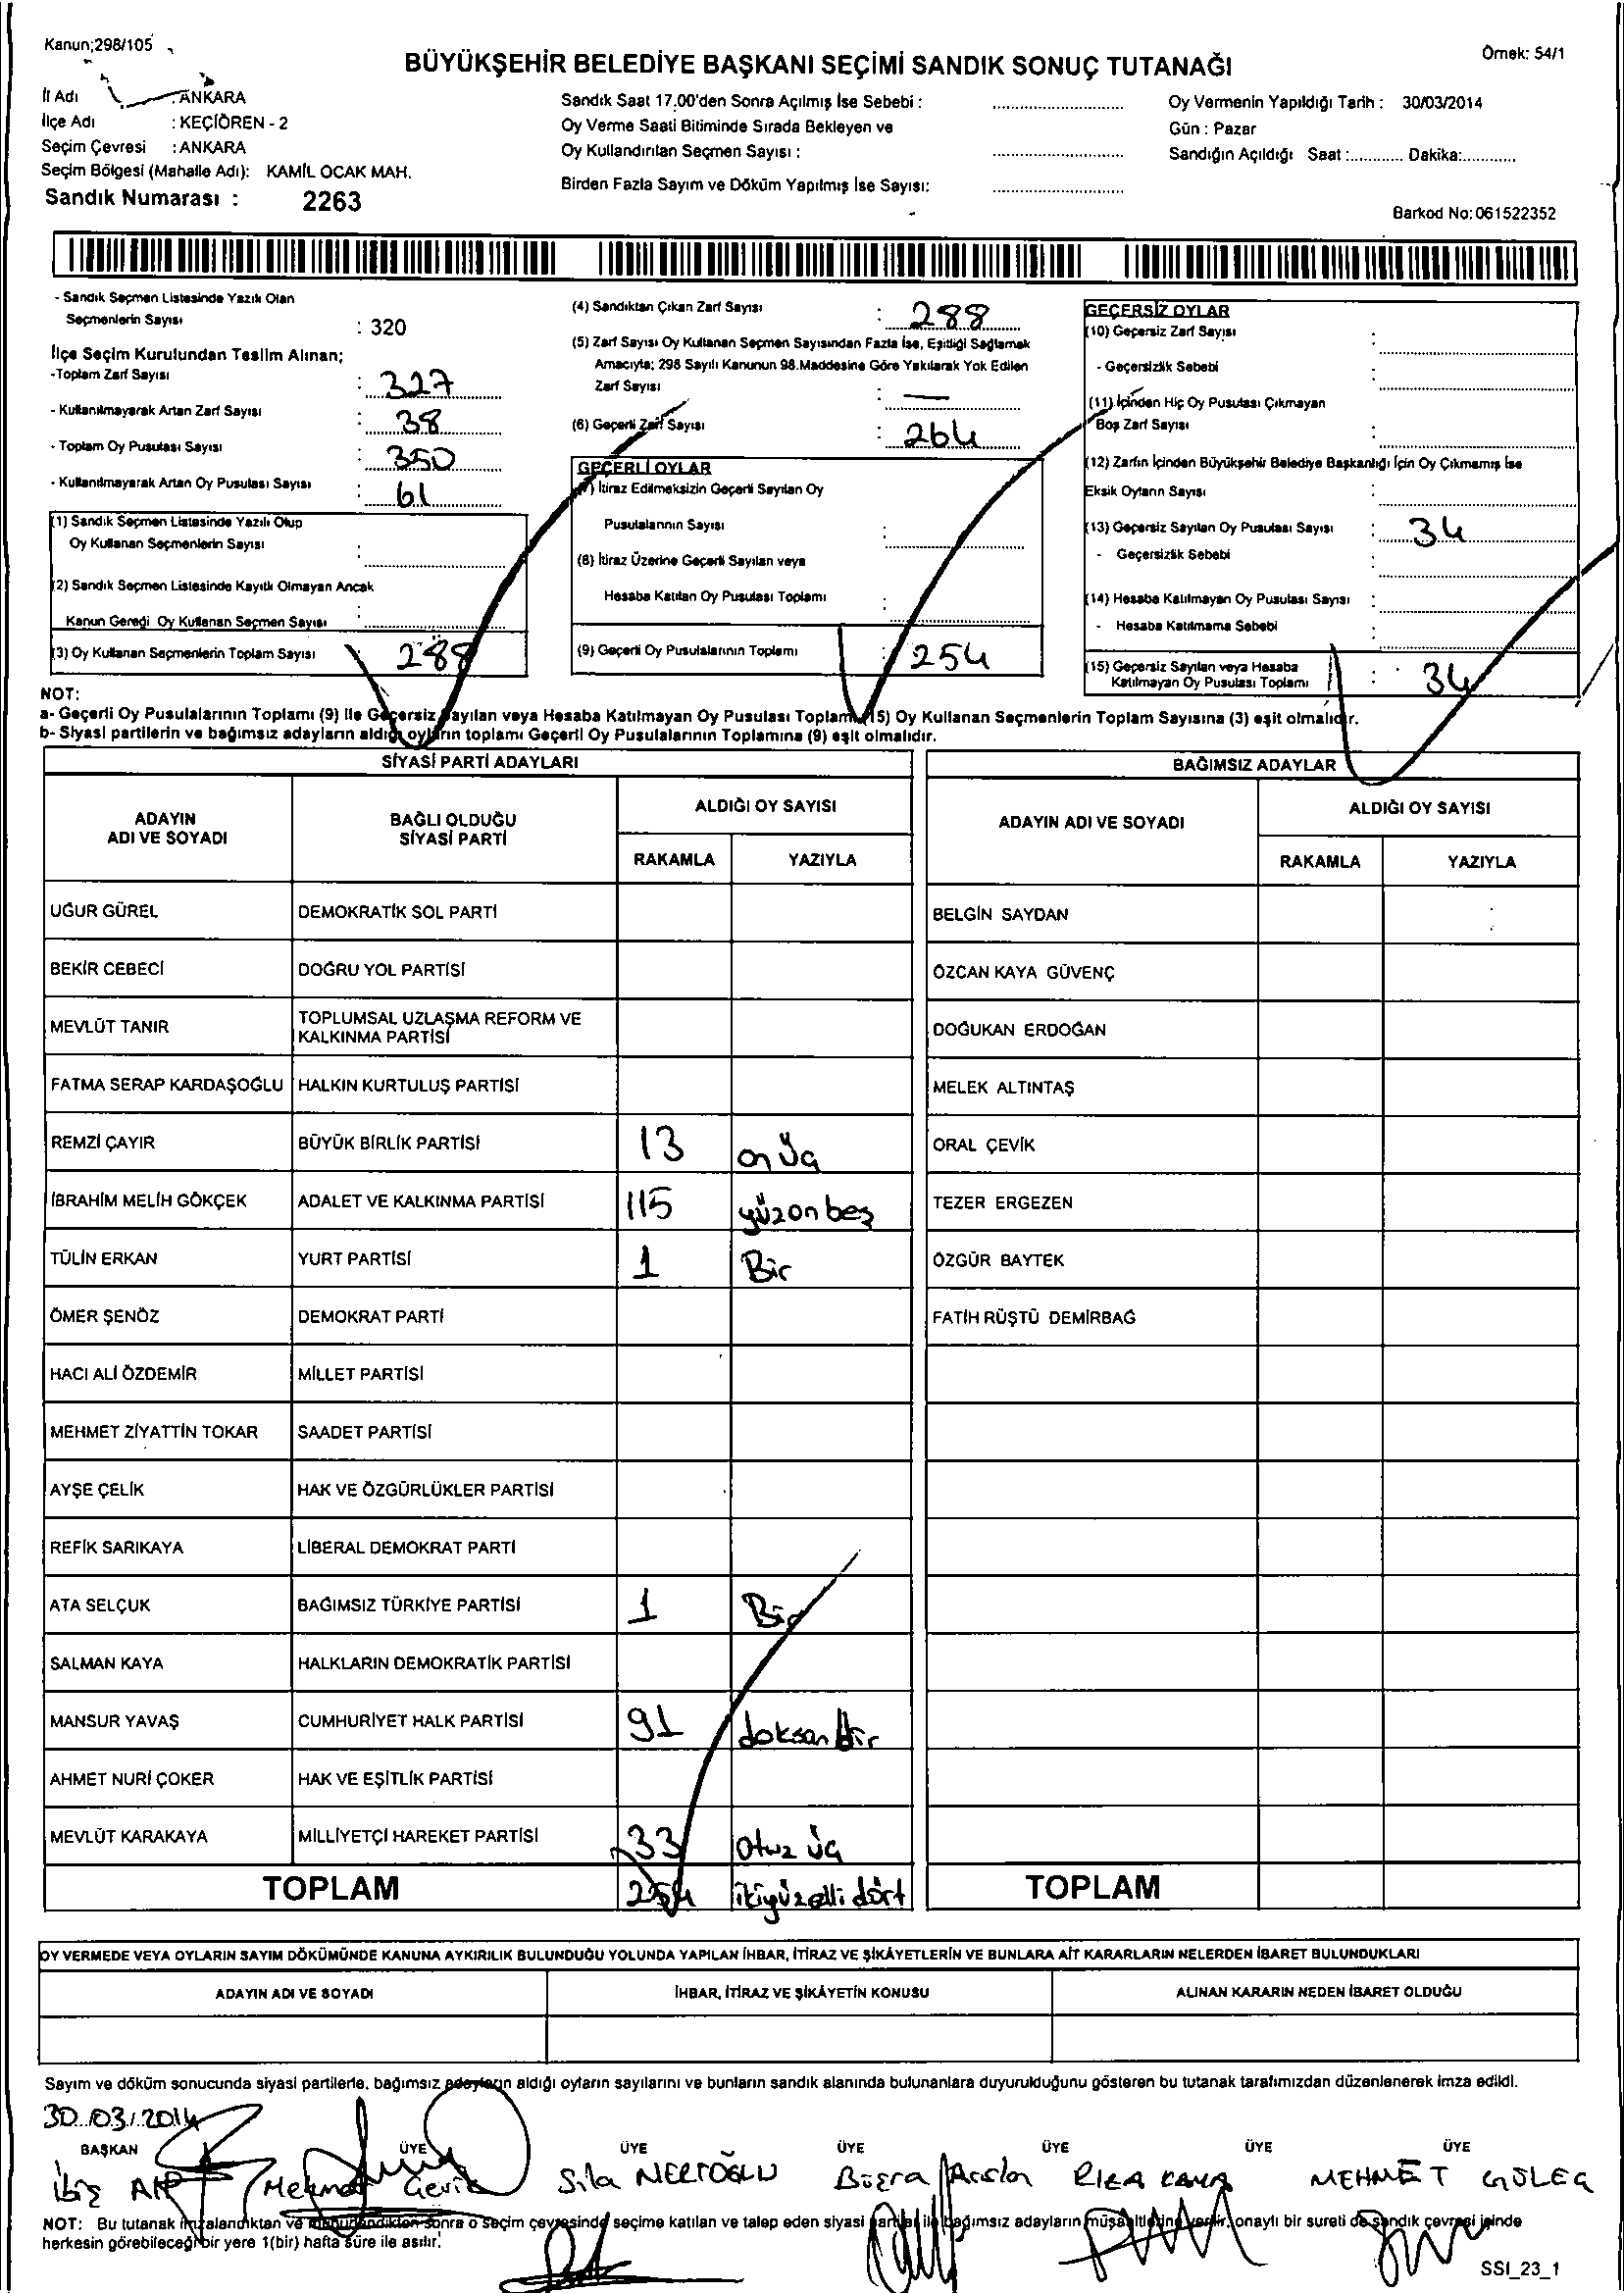 Kanun;298/105
Örnek: 54/1
BÜYÜKŞEHİR BELEDİYE BAŞKANI SEÇİMİ SANDIK SONUÇ TUTANAĞI
İl Adı : ANKARA
İlçe Adı : KEÇİÖREN - 2
Seçim Çevresi : ANKARA
Seçim Bölgesi (Mahalle Adı): KAMİL OCAK MAH.
Sandık Numarası : 2263
Sandık Saat 17.00'den Sonra Açılmış İse Sebebi :
Oy Verme Saati Bitiminde Sırada Bekleyen ve
Oy Kullandırılan Seçmen Sayısı :
Birden Fazla Sayım ve Döküm Yapılmış İse Sayısı:
Oy Vermenin Yapıldığı Tarih : 30/03/2014
Gün : Pazar
Sandığın Açıldığı Saat :........... Dakika:............
Barkod No: 061522352
- Sandık Seçmen Listesinde Yazılı Olan
Seçmenlerin Sayısı : 320
İlçe Seçim Kurulundan Teslim Alınan;
-Toplam Zarf Sayısı : 327
- Kullanılmayarak Artan Zarf Sayısı : 38
- Toplam Oy Pusulası Sayısı : 350
- Kullanılmayarak Artan Oy Pusulası Sayısı : 61
(1) Sandık Seçmen Listesinde Yazılı Olup
Oy Kullanan Seçmenlerin Sayısı :
(2) Sandık Seçmen Listesinde Kayıtlı Olmayan Ancak
Kanun Gereği Oy Kullanan Seçmen Sayısı :
(3) Oy Kullanan Seçmenlerin Toplam Sayısı : 288
(4) Sandıktan Çıkan Zarf Sayısı : 288
(5) Zarf Sayısı Oy Kullanan Seçmen Sayısından Fazla İse, Eşitliği Sağlamak
Amacıyla; 298 Sayılı Kanunun 98.Maddesine Göre Yakılarak Yok Edilen
Zarf Sayısı : —
(6) Geçerli Zarf Sayısı : 264
GEÇERLİ OYLAR
(7) İtiraz Edilmeksizin Geçerli Sayılan Oy
Pusulalarının Sayısı :
(8) İtiraz Üzerine Geçerli Sayılan veya
Hesaba Katılan Oy Pusulası Toplamı :
(9) Geçerli Oy Pusulalarının Toplamı : 254
GEÇERSİZ OYLAR
(10) Geçersiz Zarf Sayısı :
- Geçersizlik Sebebi :
(11) İçinden Hiç Oy Pusulası Çıkmayan
Boş Zarf Sayısı :
(12) Zarfın İçinden Büyükşehir Belediye Başkanlığı İçin Oy Çıkmamış İse
Eksik Oyların Sayısı :
(13) Geçersiz Sayılan Oy Pusulası Sayısı : 34
- Geçersizlik Sebebi :
(14) Hesaba Katılmayan Oy Pusulası Sayısı :
- Hesaba Katılmama Sebebi :
(15) Geçersiz Sayılan veya Hesaba
Katılmayan Oy Pusulası Toplamı : 34
NOT:
a- Geçerli Oy Pusulalarının Toplamı (9) ile Geçersiz Sayılan veya Hesaba Katılmayan Oy Pusulası Toplamı (15) Oy Kullanan Seçmenlerin Toplam Sayısına (3) eşit olmalıdır.
b- Siyasi partilerin ve bağımsız adayların aldığı oyların toplamı Geçerli Oy Pusulalarının Toplamına (9) eşit olmalıdır.
SİYASİ PARTİ ADAYLARI
ADAYIN ADI VE SOYADI
BAĞLI OLDUĞU SİYASİ PARTİ
ALDIĞI OY SAYISI
RAKAMLA YAZIYLA
UĞUR GÜREL DEMOKRATİK SOL PARTİ
BEKİR CEBECİ DOĞRU YOL PARTİSİ
MEVLÜT TANIR TOPLUMSAL UZLAŞMA REFORM VE
KALKINMA PARTİSİ
FATMA SERAP KARDAŞOĞLU HALKIN KURTULUŞ PARTİSİ
REMZİ ÇAYIR BÜYÜK BİRLİK PARTİSİ 13 on üç
İBRAHİM MELİH GÖKÇEK ADALET VE KALKINMA PARTİSİ 115 yüzonbeş
TÜLİN ERKAN YURT PARTİSİ 1 Bir
ÖMER ŞENÖZ DEMOKRAT PARTİ
HACI ALİ ÖZDEMİR MİLLET PARTİSİ
MEHMET ZİYATTİN TOKAR SAADET PARTİSİ
AYŞE ÇELİK HAK VE ÖZGÜRLÜKLER PARTİSİ
REFİK SARIKAYA LİBERAL DEMOKRAT PARTİ
ATA SELÇUK BAĞIMSIZ TÜRKİYE PARTİSİ 1 Bir
SALMAN KAYA HALKLARIN DEMOKRATİK PARTİSİ
MANSUR YAVAŞ CUMHURİYET HALK PARTİSİ 91 doksan bir
AHMET NURİ ÇOKER HAK VE EŞİTLİK PARTİSİ
MEVLÜT KARAKAYA MİLLİYETÇİ HAREKET PARTİSİ 33 otuz üç
TOPLAM 254 ikiyüzelli dört
BAĞIMSIZ ADAYLAR
ADAYIN ADI VE SOYADI
ALDIĞI OY SAYISI
RAKAMLA YAZIYLA
BELGİN SAYDAN
ÖZCAN KAYA GÜVENÇ
DOĞUKAN ERDOĞAN
MELEK ALTINTAŞ
ORAL ÇEVİK
TEZER ERGEZEN
ÖZGÜR BAYTEK
FATİH RÜŞTÜ DEMİRBAĞ
TOPLAM
OY VERMEDE VEYA OYLARIN SAYIM DÖKÜMÜNDE KANUNA AYKIRILIK BULUNDUĞU YOLUNDA YAPILAN İHBAR, İTİRAZ VE ŞİKÂYETLERİN VE BUNLARA AİT KARARLARIN NELERDEN İBARET BULUNDUKLARI
ADAYIN ADI VE SOYADI İHBAR, İTİRAZ VE ŞİKÂYETİN KONUSU ALINAN KARARIN NEDEN İBARET OLDUĞU
Sayım ve döküm sonucunda siyasi partilerle, bağımsız adayların aldığı oyların sayılarını ve bunların sandık alanında bulunanlara duyurulduğunu gösteren bu tutanak tarafımızdan düzenlenerek imza edildi.
30/03/2014
BAŞKAN ÜYE ÜYE ÜYE ÜYE ÜYE ÜYE
Mehmet Sıla Büşra Arslan RIZA KAYA MEHMET GÜLEÇ
NOT: Bu tutanak imzalandıktan ve mühürlendikten sonra o seçim çevresinde seçime katılan ve talep eden siyasi partiler ile bağımsız adayların müşahitlerine verilir, onaylı bir sureti de sandık çevresi içinde
herkesin görebileceği bir yere 1(bir) hafta süre ile asılır.
SSI_23_1